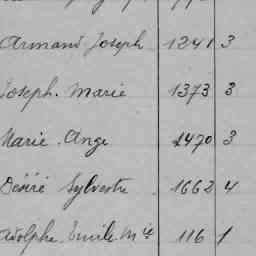 Armand Joseph 1241 3
Joseph. Marie 1373 3
Marie. Ange 1470 3
Désiré Sylvestre 1662 4
Adolphe. Emile. Mie 116 1